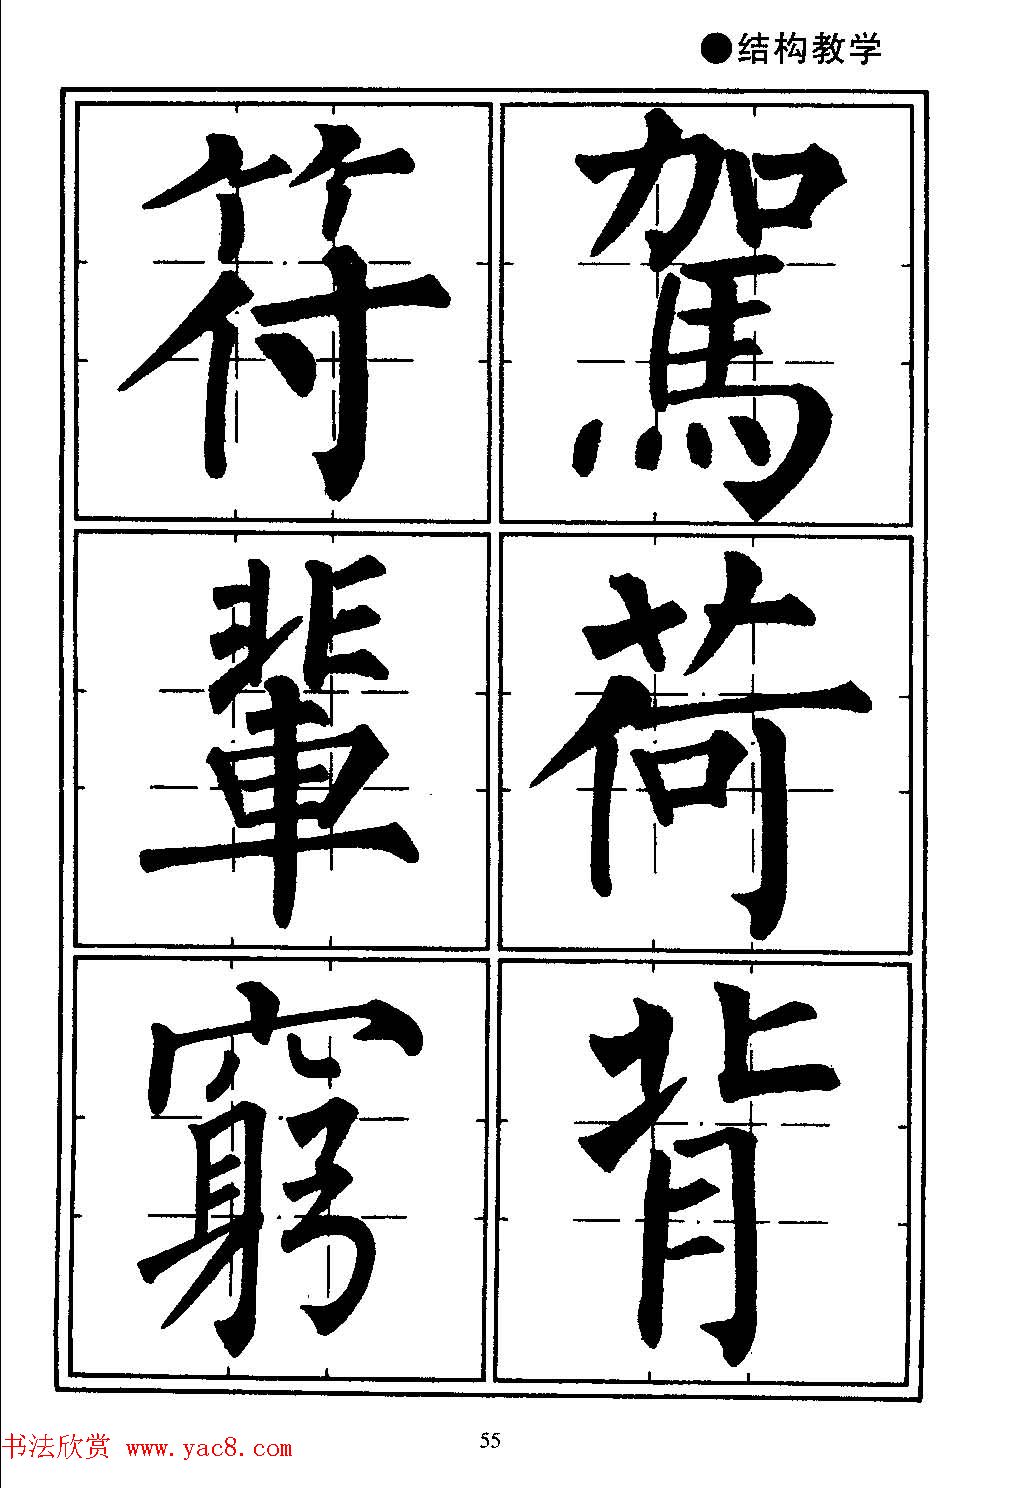 ●结构教学
符 駕
輩 荷
窮 背
书法欣赏 www.yac8.com
55